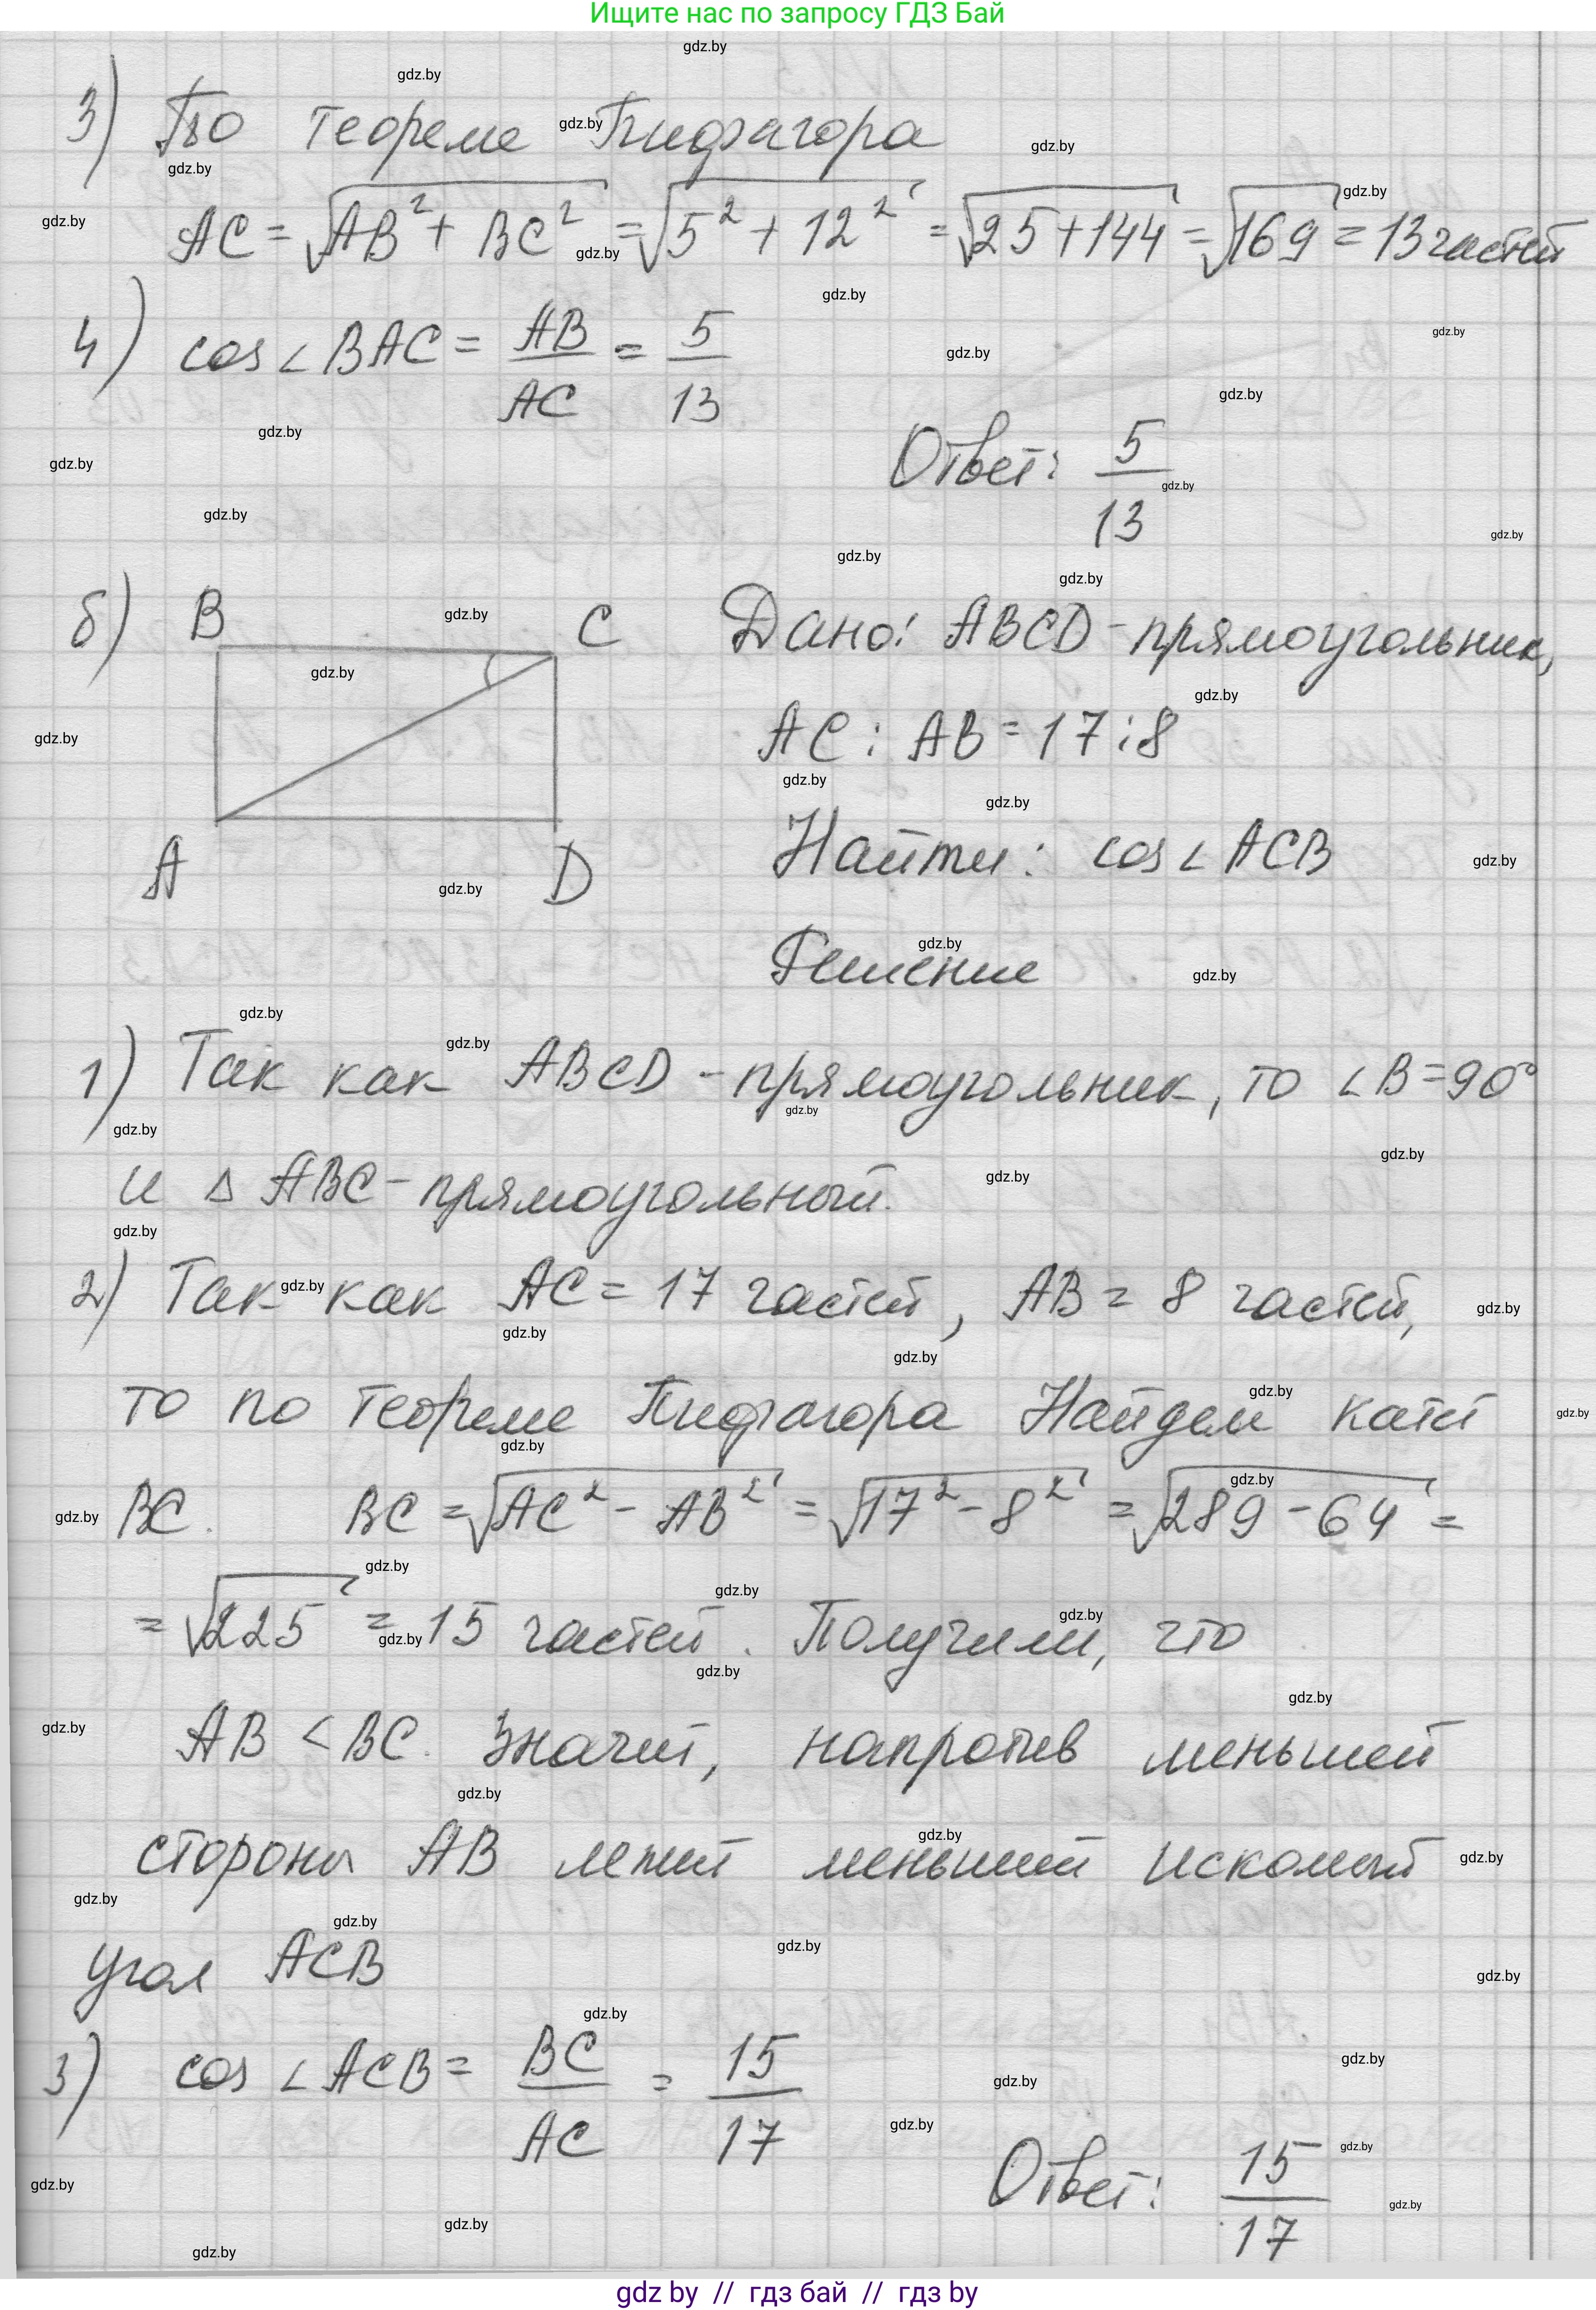 Ищите нас по запросу ГДЗ Бай
3) По теореме Пифагора
AC = √(AB² + BC²) = √(5² + 12²) = √(25+144) = √169 = 13 частей
4) cos∠BAC = AB/AC = 5/13
Ответ: 5/13
б) B C A D
Дано: ABCD - прямоугольник,
AC : AB = 17 : 8
Найти: cos∠ACB
Решение
1) Так как ABCD - прямоугольник, то ∠B = 90°
и △ABC - прямоугольный.
2) Так как AC = 17 частей, AB = 8 частей,
то по теореме Пифагора Найдем катет
BC. BC = √(AC² - AB²) = √(17² - 8²) = √(289 - 64) =
= √225 = 15 частей. Получили, что
AB < BC. Значит, напротив меньшей
стороны AB лежит меньший искомый
угол ACB
3) cos∠ACB = BC/AC = 15/17
Ответ: 15/17
gdz by // гдз бай // гдз by